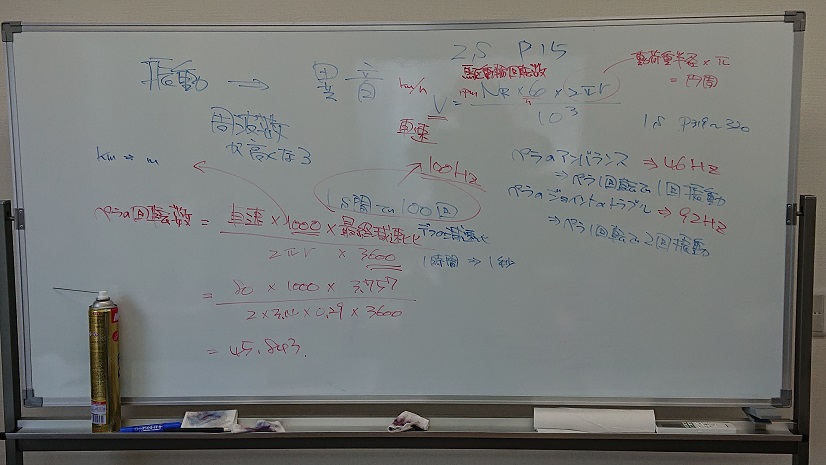 2,S P15
振動 → 異音
駆動輪回転数
動荷重半径×π
=円周
km/h
V = NR × 60 × 2πr
rpm
10³
車速
1,S P319～320
周波数
が高くなる
km ⇒ m
100Hz
1S間で100回
ペラのアンバランス ⇒ 46Hz
⇒ペラ1回転で1回振動
ペラのジョイントのトラブル ⇒ 92Hz
⇒ペラ1回転で2回振動
ペラの回転数 = 車速×1000×最終減速比 デフの減速比
2πr × 3600
1時間 ⇒ 1秒
= 80 × 1000 × 3.757
2×3.14×0.29×3600
= 45.843.